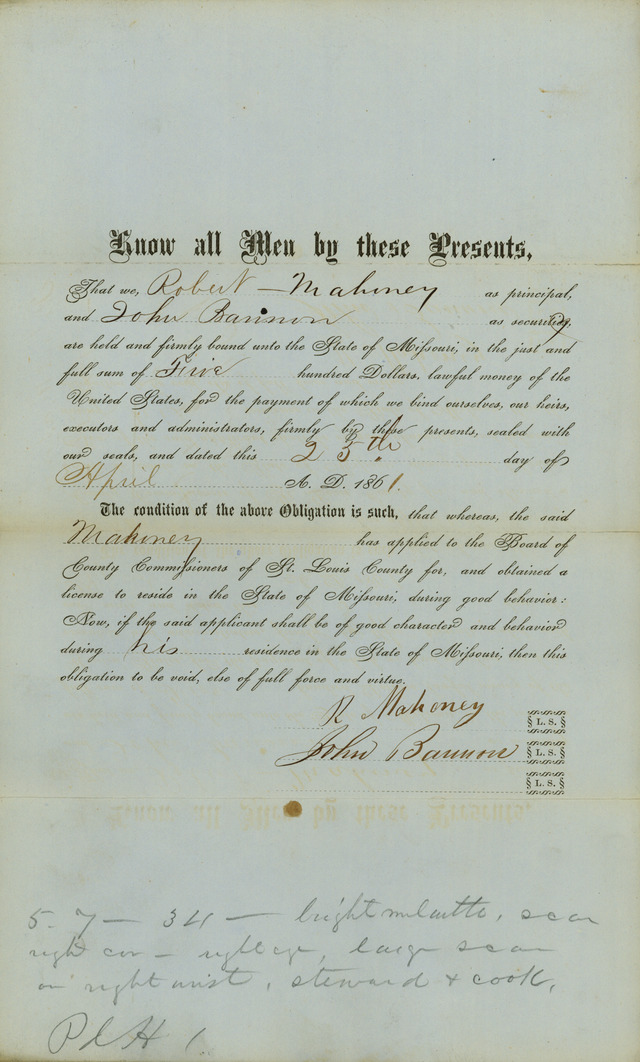 Know all Men by these Presents,
That we, Robert Mahoney as principal,
and John Bannon as security
are held and firmly bound unto the State of Missouri, in the just and
full sum of Five hundred Dollars, lawful money of the
United States, for the payment of which we bind ourselves, our heirs,
executors and administrators, firmly by these presents, sealed with
our seals, and dated this 25th day of
April A. D. 1861.
The condition of the above Obligation is such, that whereas, the said
Mahoney has applied to the Board of
County Commissioners of St. Louis County for, and obtained a
license to reside in the State of Missouri, during good behavior:
Now, if the said applicant shall be of good character and behavior
during his residence in the State of Missouri, then this
obligation to be void, else of full force and virtue.
R Mahoney L. S.
John Bannon L. S.
L. S.
5-7 — 34 — bright mulatto, scar
right — right eye, large scar
on right wrist, steward & cook,